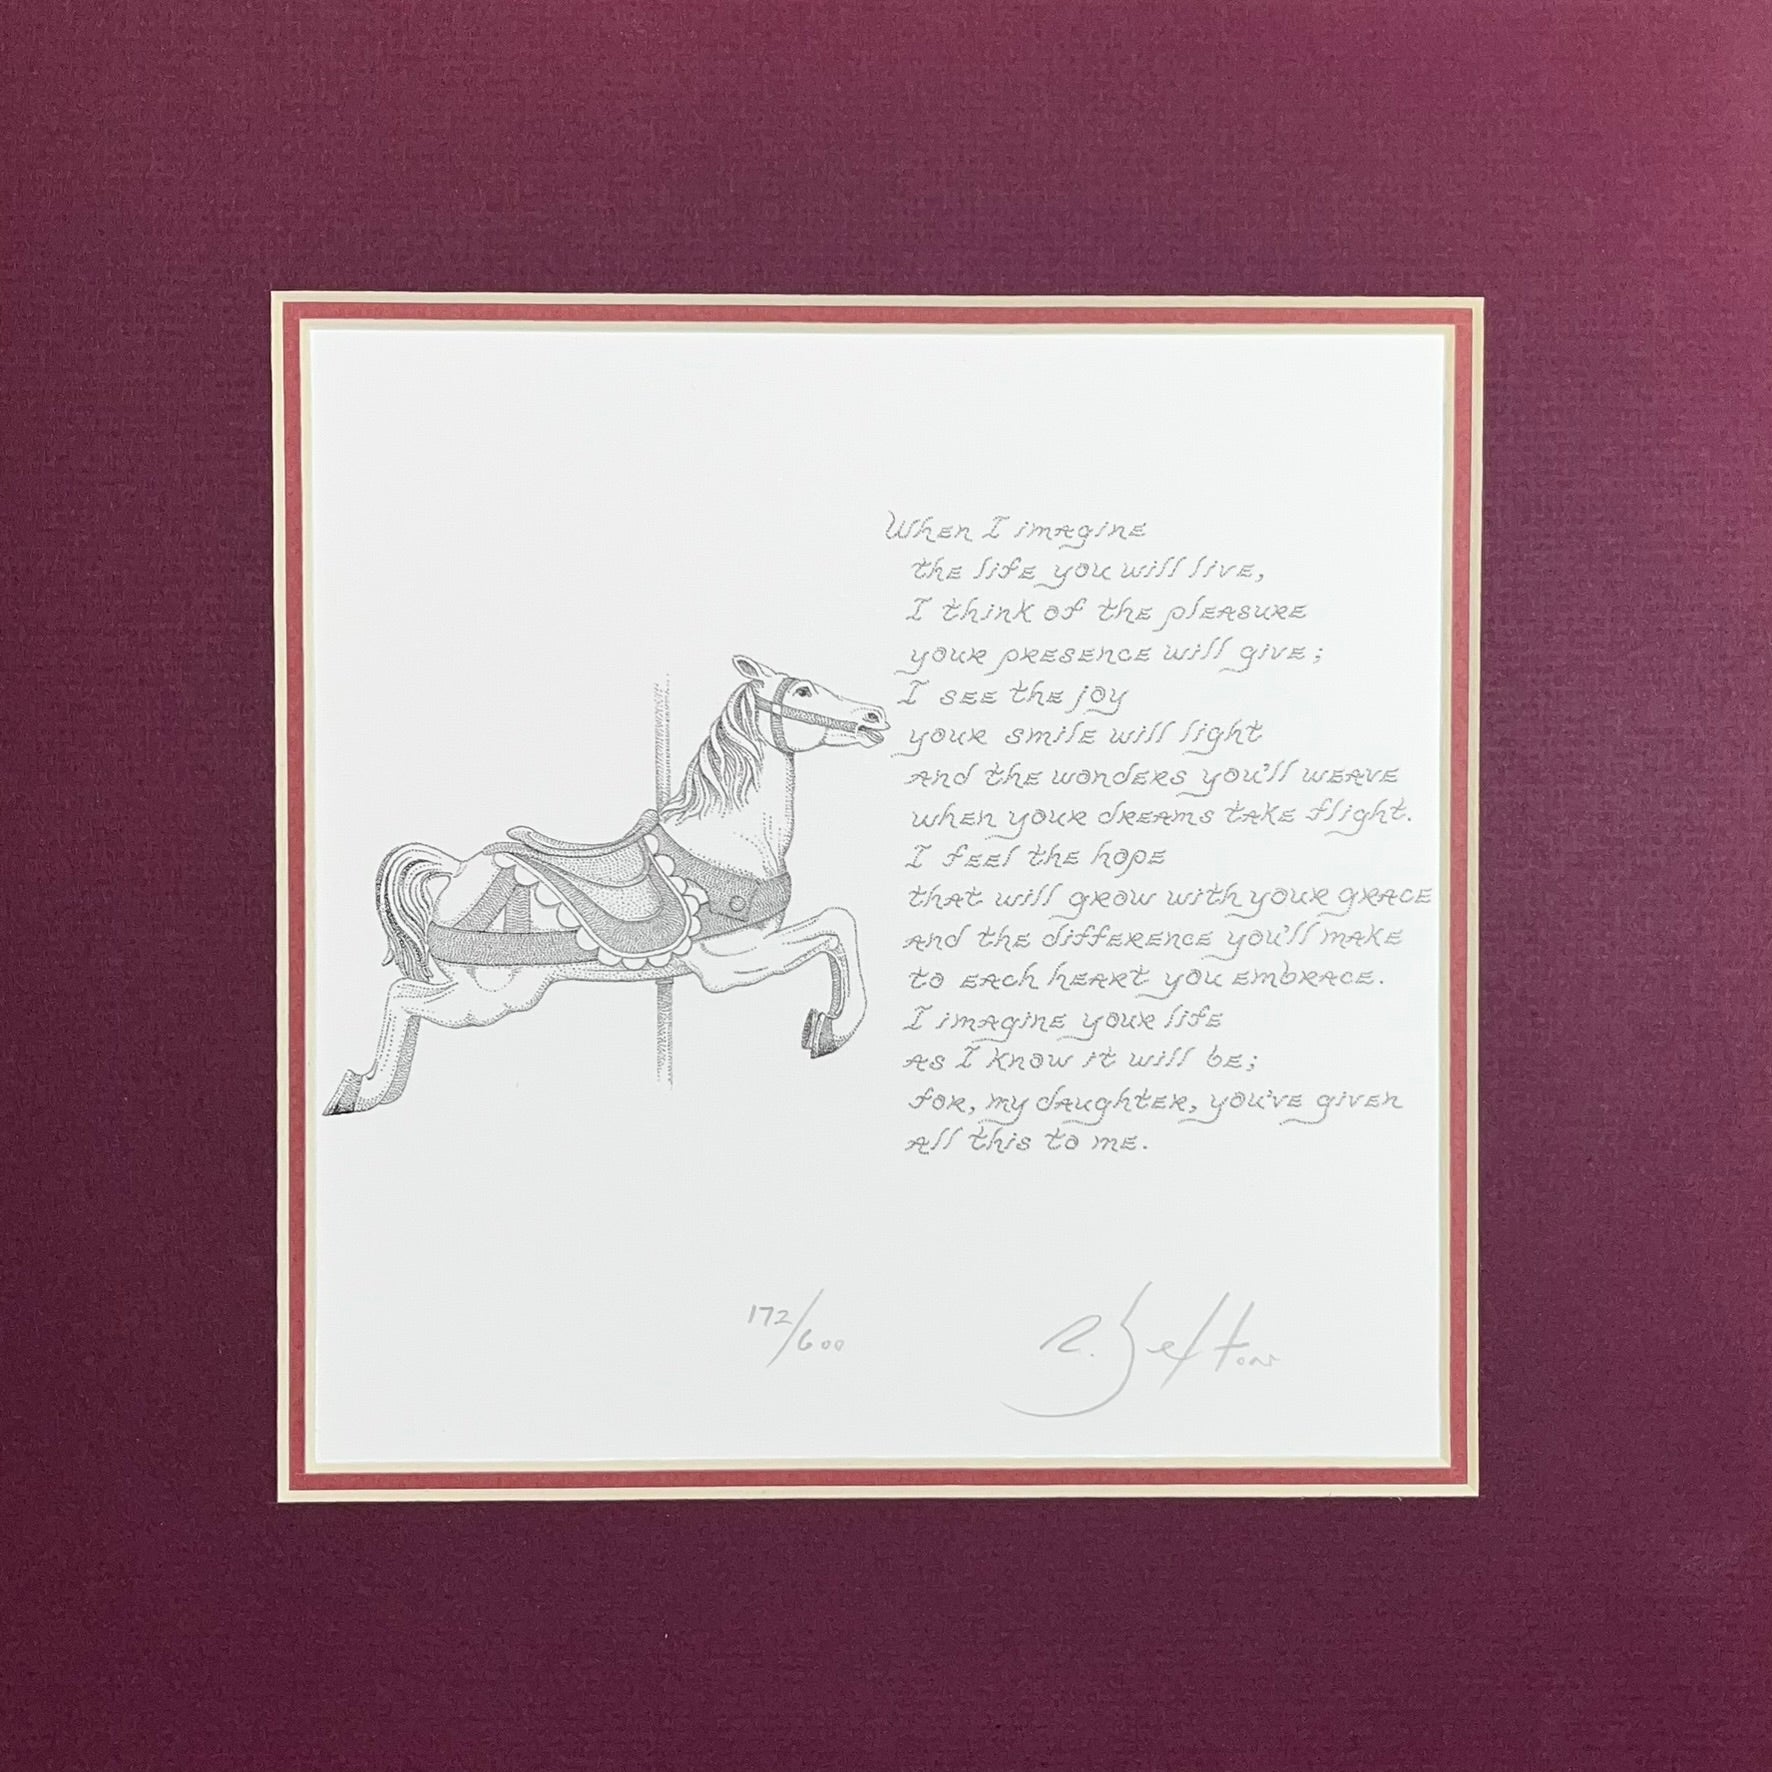 When I imagine
the life you will live,
I think of the pleasure
your presence will give;
I see the joy
your smile will light
and the wonders you'll weave
when your dreams take flight.
I feel the hope
that will grow with your grace
and the difference you'll make
to each heart you embrace.
I imagine your life
as I know it will be;
for, my daughter, you've given
all this to me.
172/600
R. Sexton